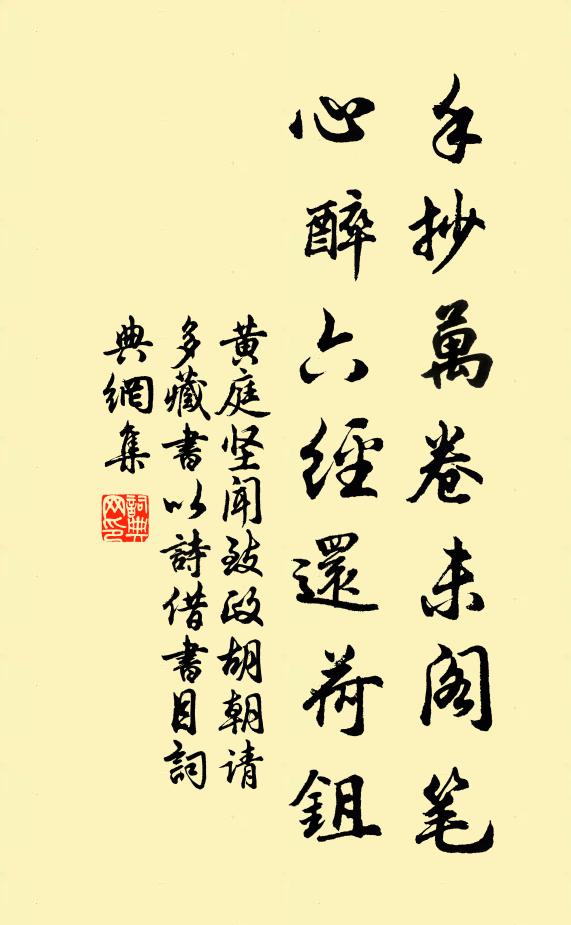 手抄萬卷未阁笔
心醉六經還荷鉏
黄庭坚闻致政胡朝请
多藏書以詩借書目詞
典網集
詞典网印